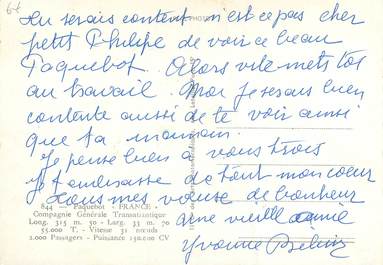 64
Tu serais content n'est ce pas cher
petit Philipe de voir ce beau
Paquebot. Alors vite mets toi
au travail. Moi je serais bien
contente aussi de te voir ainsi
que ta maman.
Je pense bien a vous trois
Je t'embrasse de tout mon coeur
Tous mes voeux de bonheur
une vieille amie
Yvonne
844 — Paquebot « FRANCE »
Compagnie Générale Transatlantique
Long. 315 m. 50 - Larg. 33 m. 70
55.000 T. - Vitesse 31 nœuds
2.000 Passagers - Puissance 150.000 CV